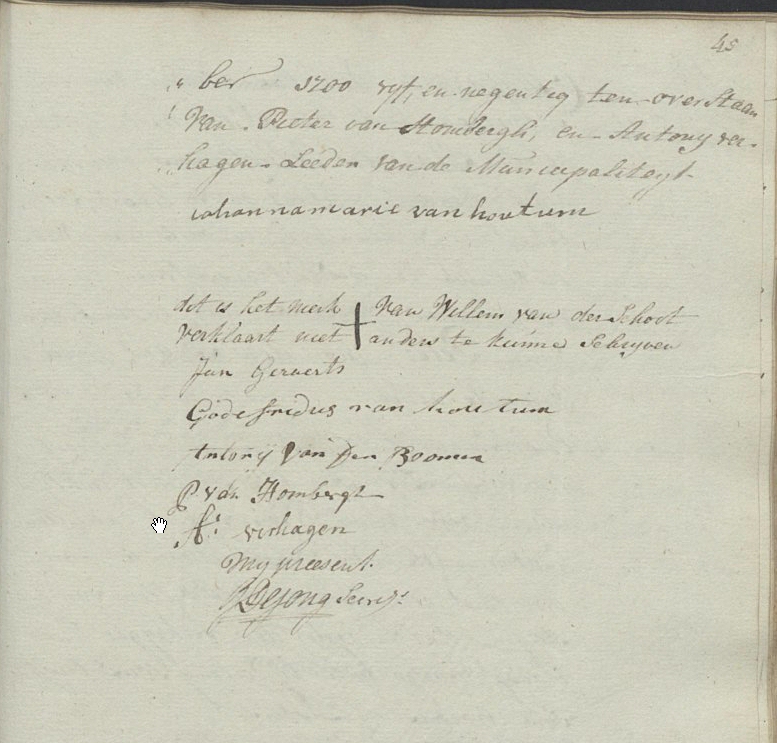 45
„ ber 1700 vyf, en negentig ten overstaan
van Pieter van Hombergh, en Antony ver-
hagen Leeden van de Municipaliteyt
iohannamarie van houtum
dit is het merk + van Willem van der Schoot
verklaart niet anders te kunne Schryven
Jan Geraerts
Godefridus van houtum
Antonij van Den Boomen
P. van Hombergh
A: verhagen
My present
DeJong Secrs.